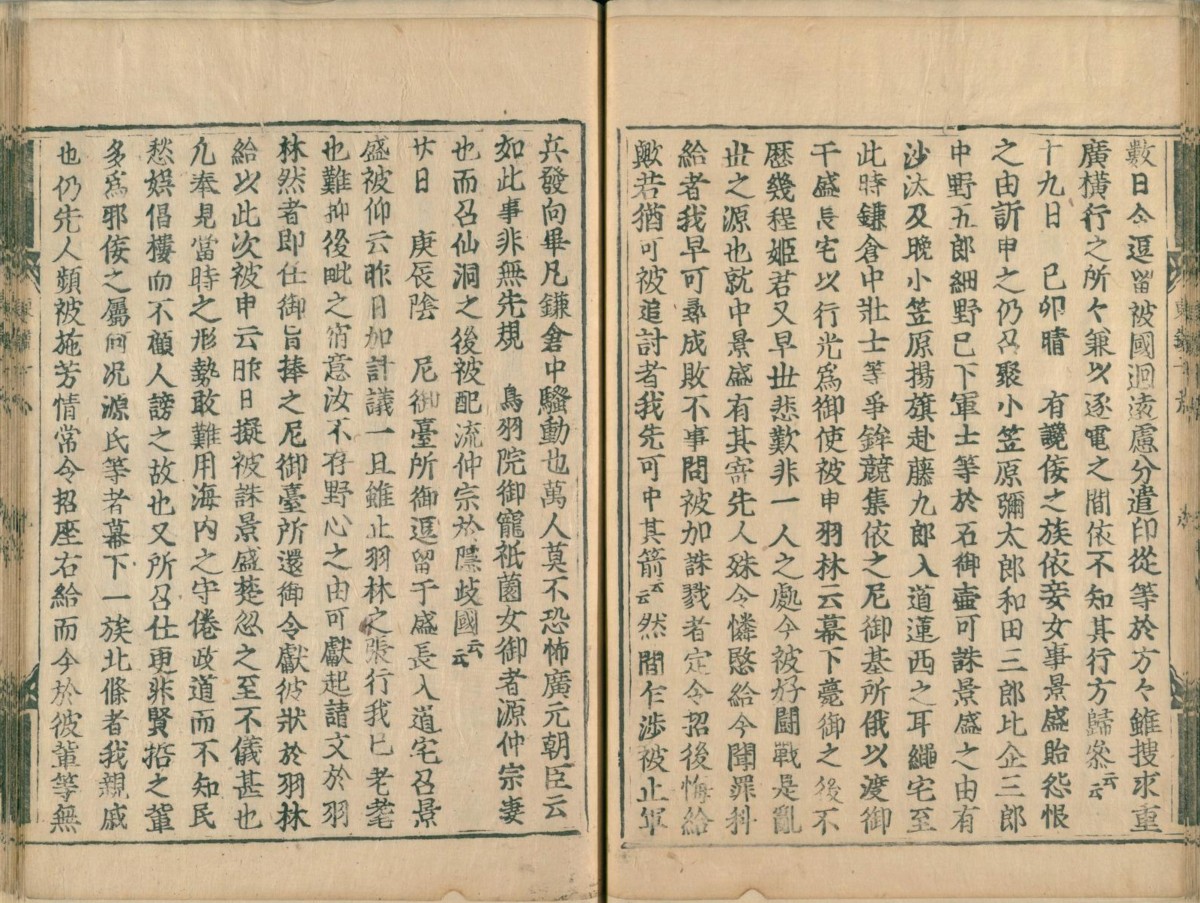 數日令逗留被國廻遠慮分遣印從等於方々雖搜求重
廣橫行之所々兼以逐電之間依不知其行方歸參云云
十九日　己卯晴　有讒侫之族依妾女事景盛貽怨恨
之由訴申之仍召聚小笠原彌太郎和田三郎比企三郎
中野五郎細野已下軍士等於石御壷可誅景盛之由有
沙汰及晚小笠原揚旗赴藤九郎入道蓮西之耳繩宅至
此時鎌倉中壯士等爭鉾競集依之尼御基所俄以渡御
于盛長宅以行光爲御使被申羽林云幕下薨御之後不
歷幾程姫君又早世悲歎非一人之處今被好鬪戰是亂
世之源也就中景盛有其寄先人殊令憐愍給今聞罪科
給者我早可尋成敗不事問被加誅戮者定令招後悔給
歟若猶可被追討者我先可中其箭云云然間乍澁被止軍
兵發向畢凡鎌倉中騷動也萬人莫不恐怖廣元朝臣云
如此事非無先規　鳥羽院御寵祇園女御者源仲宗妻
也而召仙洞之後被配流仲宗於隱歧國云云
廿日　庚辰陰　尼御臺所御逗留于盛長入道宅召景
盛被仰云昨日加計議一旦雖止羽林之張行我已老耄
也難抑後毗之宿意汝不存野心之由可獻起請文於羽
林然者即任御旨捧之尼御臺所還御令獻彼狀於羽林
給以此次被申云昨日擬被誅景盛楚忽之至不儀甚也
凢奉見當時之形勢敢難用海內之守倦政道而不知民
愁娯倡樓而不顧人謗之故也又所召仕更非賢哲之輩
多爲邪侫之屬何况源氏等者幕下一族北條者我親戚
也仍先人頻被施芳情常令招座右給而今於彼輩等無